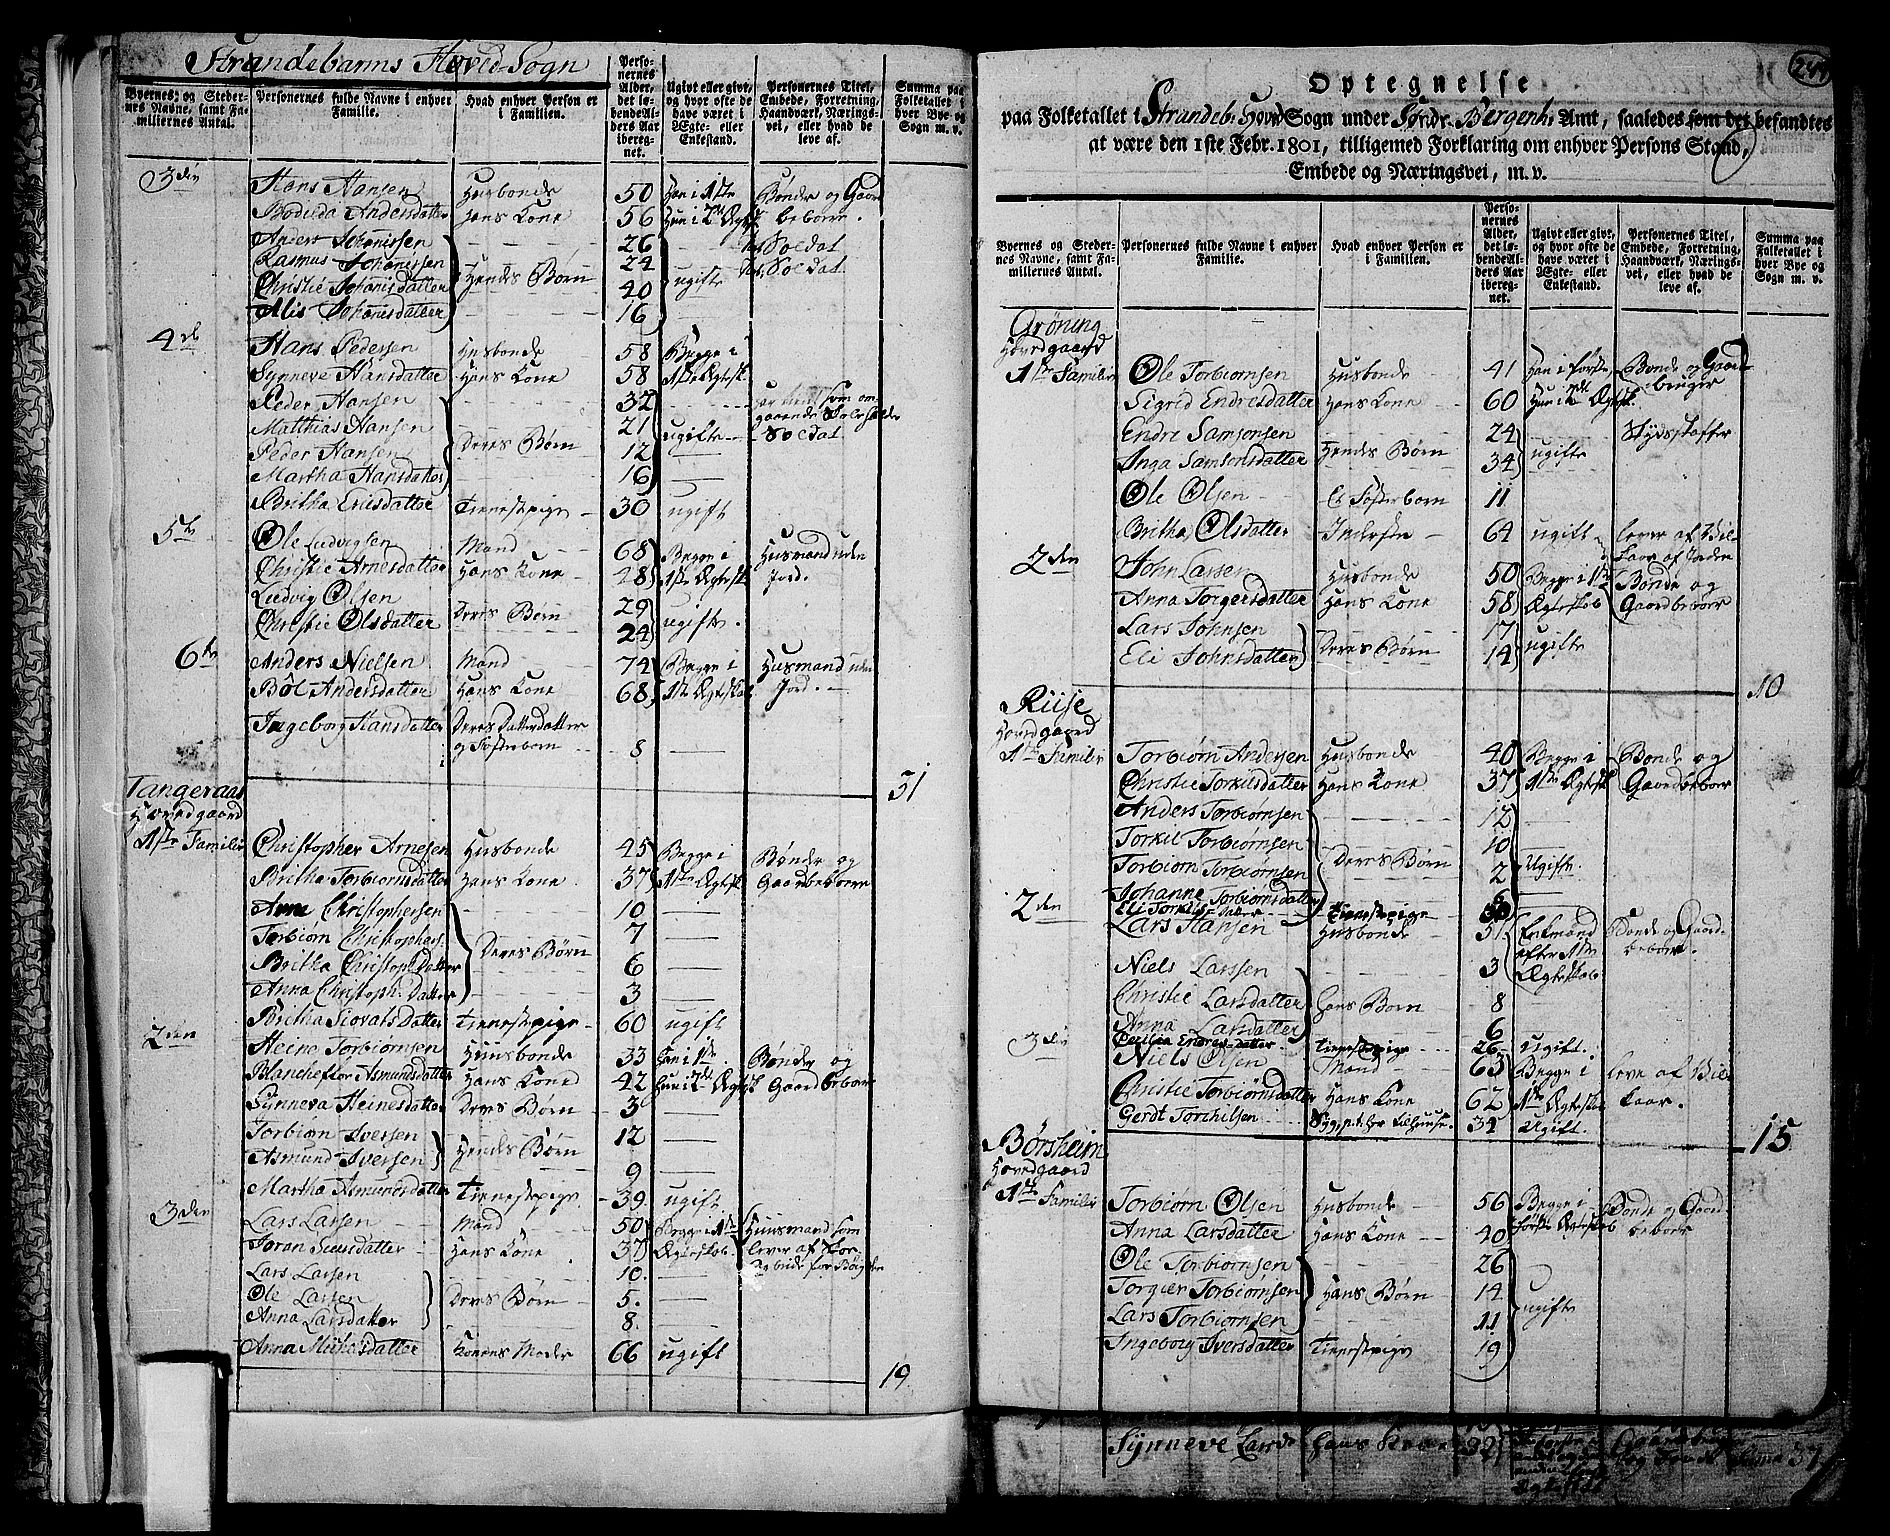 Strandebarms Hoved-Sogn
Byernes; og Steder-nes Navne, samt Fa-miliernes Antal.
Personernes fulde Navne i enhver Familie.
Hvad enhver Person er i Familien.
Perso-nernes Alder, det lø-bende Al-ders Aar iberegnet.
Ugivt eller givt, og hvor ofte de have været i Ægte- eller Enkestand.
Personernes Titel, Embede, Forretning, Haandværk, Nærings-vei, eller hvad de leve af.
Summa paa Folketallet i hver Bye og Sogn m. v.
3die Hans Hansen Husbonde 50 Han i 1ste Bønde og Gaard
Bodilda Andersdatter Hans Kone 56 Hun i 2det Ægtesk beboere.
Anders Johanissen 26 Soldat
Rasmus Johanissen 24 Soldat
Christie Johanisdatter Hendes Børn 40 ugifte
Alis Johanisdatter 16
4de Hans Pedersen Husbonde 58 Begge i
Synneve Hansdatter Hans Kone 58 1ste Ægtesk.
Peder Hansen 32
Matthias Hansen 21 ugifte Soldat
Peder Hansen Deres Børn 12
Martha Hansdatter 16
Britha Ericsdatter Tienestepige 30 ugift
5te Ole Ludvigsen Mand 68 Begge i Husmand uden
Christie Arnesdatter Hans Kone 28 1ste Ægtesk. Jord.
Ludvig Olsen Deres Børn 29 ugifte.
Christie Olsdatter 24
6te Anders Nielsen Mand 74 Begge i Husmand uden
Bôl Andersdatter Hans Kone 68 1ste Ægteskab Jord.
Ingeborg Hansdatter Deres Datterdatter
og Fosterbarn 8
51
Tangeraas
Hovedgaard
1ste Familie Christopher Arnesen Husbonde 45 Begge i Bønder og
Britha Torbiørnsdatter Hans Kone 37 1ste Ægtesk. Gaardbeboere
Arne Christophersen 10
Torbiørn Christophers. 7
Britha Christoph.Datter Deres Børn 6
Anna Christoph. Datter 3
Britha Siovats Datter Tienestepige 60 ugift
2den Heine Torbiørnsen Huusbonde 33 Han i 1ste Bønder og
Blancheflor Asmundsdatter Hans Kone 42 Hun i 2det Ægtesk Gaardbeboere
Synneva Heinesdatter Deres Børn 3
Torbiørn Iversen 12
Asmund Iversen Hendes Børn 9
Martha Asmundsdatter Tienestepige 39. ugift
3den Lars Larsen Mand 50 Begge i 1ste Huusmand som
Joran Siursdatter Hans Kone 37 Ægteskab. lever af
Lars Larsen 10.
Ole Larsen Deres Børn 5.
Anna Larsdatter 8.
Anna Michelsdatter Konens Moder 66 ugift
19
244
Optegnelse
paa Folketallet i Strandeb: Hoved Sogn under Søndr. Bergenh. Amt, saaledes som det befandtes
at være den 1ste Febr. 1801, tilligemed Forklaring om enhver Persons Stand,
Embede og Næringsvei, m. v.
Byernes og Steder-nes Navne, samt Fa-miliernes Antal.
Personernes fulde Navne i enhver Familie.
Hvad enhver Person er i Familien.
Perso-nernes Alder, det lø-bende Al-ders Aar iberegnet.
Ugivt eller givt, og hvor ofte de have været i Ægte- eller Enkestand.
Personernes Titel, Embede, Forretning, Haandværk, Nærings-vei, eller hvad de leve af.
Summa paa Folketallet i hver Bye og Sogn m. v.
Grøning
Hovedgaard
1ste Familie Ole Torbiørnsen Husbonde 41 Han i første, Bonde og Gaard
Sigrid Endresdatter Hans Kone 60 Hun i 2det Ægtesk. bruger
Endre Samsonsen 24 Skydsskaffer
Inga Samsonsdatter Hendes Børn 34 ugifte
Ole Olsen Et Fosterbarn 11
Britha Olsdatter Inderste 64 ugift
2den John Larsen Husbonde 50 Begge i 1ste Bonde og
Anna Torgersdatter Hans Kone 58 Ægteskab Gaardbeboer
Lars Johnsen 17 ugifte
Eli Johnsdatter Deres Børn 14
10
Riise
Hovedgaard
1ste Familie Torbiørn Andersen Husbonde 40 Begge i Bonde og
Christie Torkildsdatter Hans Kone 37 1ste Ægtesk Gaardbeboer
Anders Torbiørnsen 12
Torkil Torbiørnsen 10
Torbiørn Torbiørnsen Deres Børn 2 Ugifte
Johanne Torbiørnsdatter 6
Eli Torkils-datter Tienestepige
2den Lars Hansen Husbonde 51. Enkemand Bonde og Gaard-
efter 1ste beboer.
Niels Larssen 3 Ægteskab
Christie Larsdatter Hans Børn 8
Anna Larsdatter 6
Cecilia Endres-datter Tienestepige 26 Ugift.
3die Niels Olsen Mand 63 Begge i leve af Vil-
Christie Torbiørnsdatter Hans Kone 62 1ste Ægteskab kaar.
Gerdt Torchilsen 34 Ugift.
15
Børsheim
Hovedgaard
1ste Familie Torbiørn Olsen Husbonde 56 Begge i Bonde og Gaard-
Anna Larsdatter Hans Kone 40 første Ægteskab beboer
Ole Torbiørnsen 26
Torgier Torbiørnsen Hans Børn 14 ugifte
Lars Torbiørnsen 11
Ingeborg Iversdatter Tienestepige 19
Synneve Larsd Hans Kone 32
37